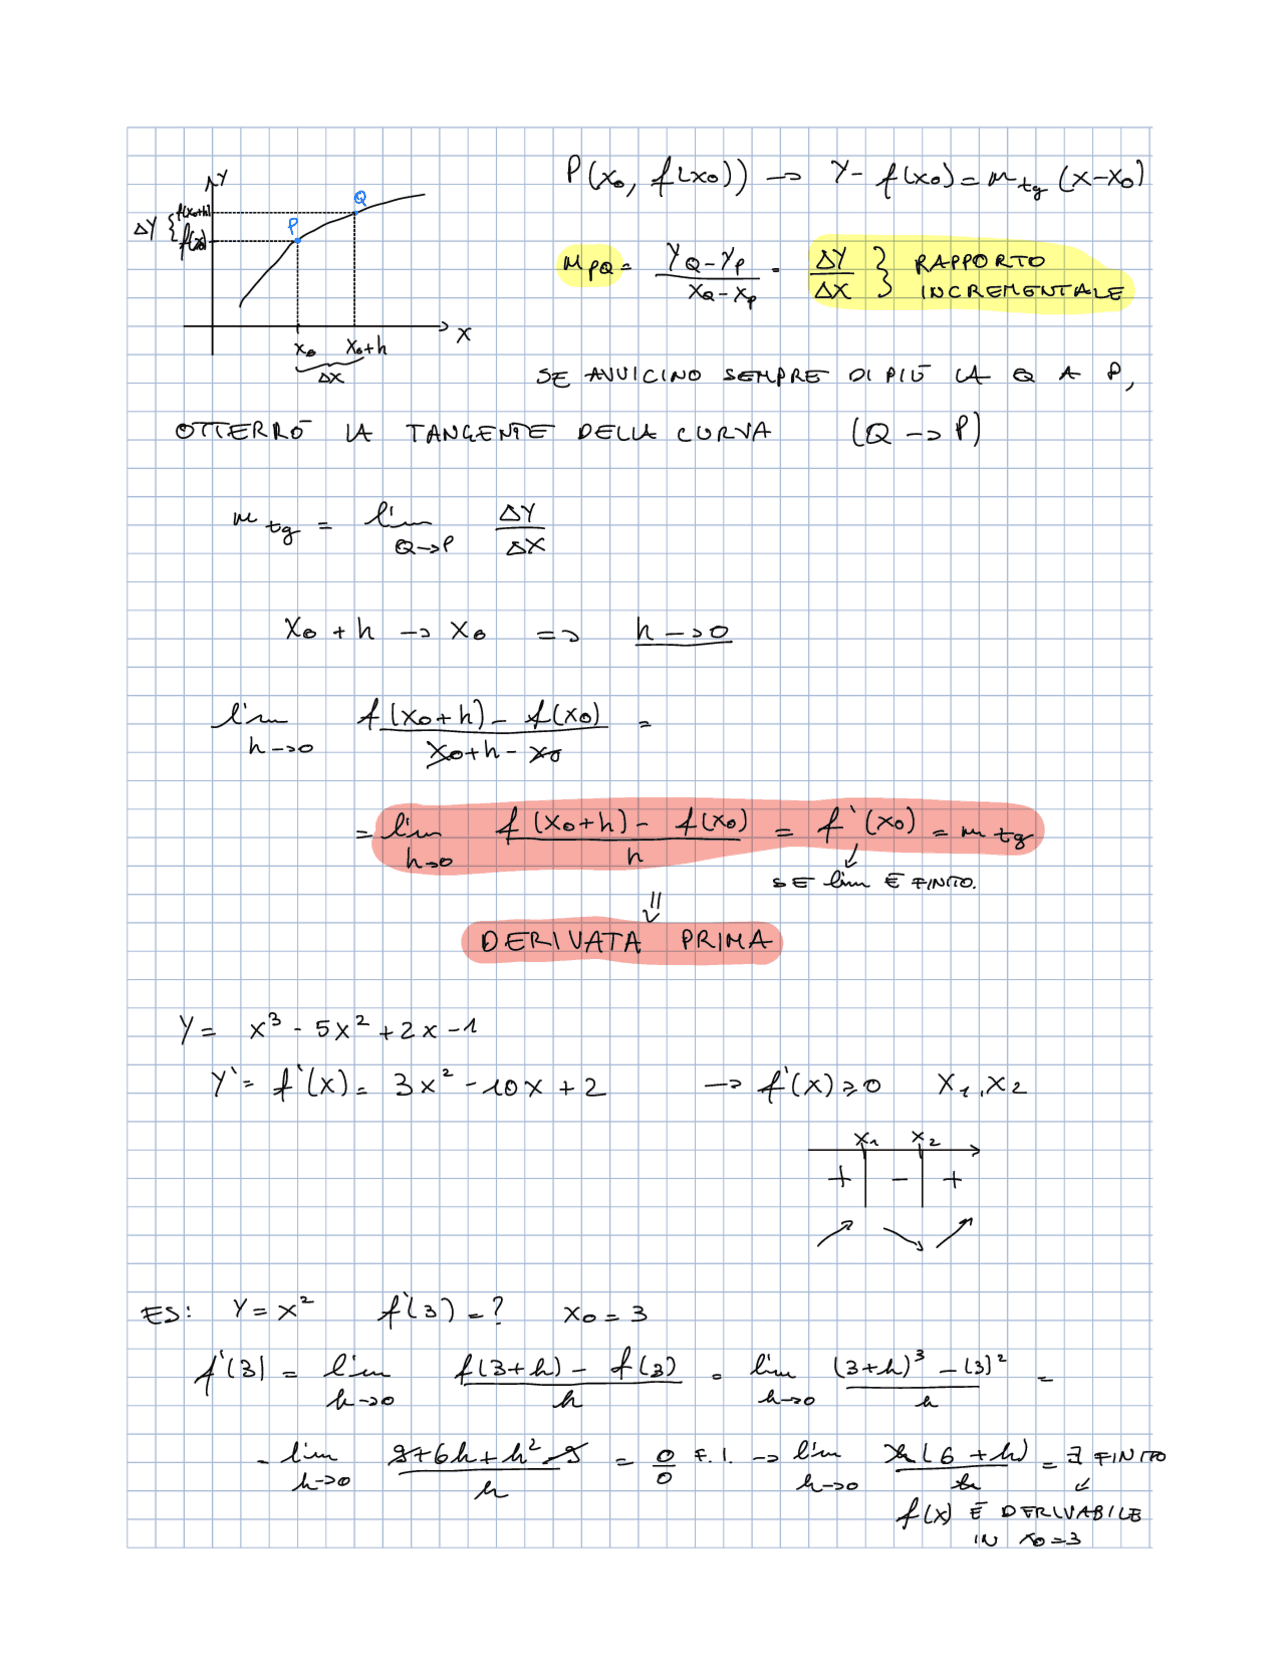 P(x₀, f(x₀)) → Y - f(x₀) = m_tg (x-x₀)
Y
Q
f(x₀+h)
P
ΔY { f(x₀)
x₀ x₀+h X
ΔX
m_PQ = (Y_Q - Y_P)/(x_Q - x_P) = ΔY/ΔX } RAPPORTO INCREMENTALE
SE AVVICINO SEMPRE DI PIÙ LA Q A P,
OTTERRÒ LA TANGENTE DELLA CURVA (Q → P)
m_tg = lim Q→P ΔY/ΔX
x₀ + h → x₀ => h → 0
lim h→0 (f(x₀+h) - f(x₀))/(x₀+h - x₀) =
= lim h→0 (f(x₀+h) - f(x₀))/h = f'(x₀) = m_tg
SE lim È FINITO.
DERIVATA PRIMA
Y = x³ - 5x² + 2x - 1
Y' = f'(x) = 3x² - 10x + 2 → f'(x) ≥ 0 x₁, x₂
x₁ x₂
+ - +
ES: Y = x² f'(3) = ? x₀ = 3
f'(3) = lim h→0 (f(3+h) - f(3))/h = lim h→0 ((3+h)³ - (3)²)/h =
= lim h→0 (9+6h+h²-9)/h = 0/0 F.I. → lim h→0 h(6+h)/h = ∃ FINITO
f(x) È DERIVABILE
IN x₀=3